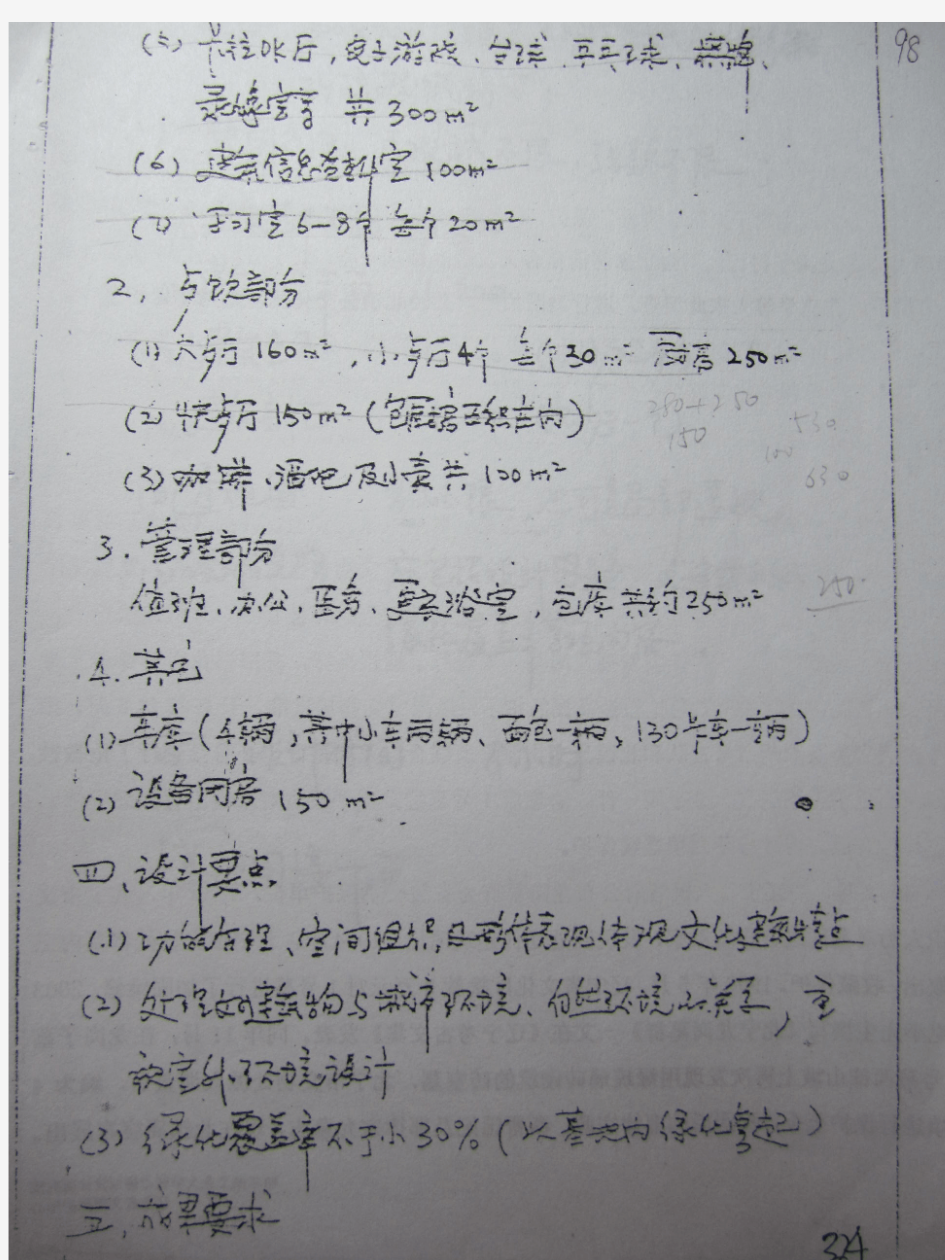 98
(5) 卡拉OK厅，电子游戏、台球、乒乓球、棋牌、
录像室等 共300m²
(6) 建筑信息资料室 100m²
(7) 学习室6-8个 每个20m²
2、餐饮部分
(1) 大餐厅 160m²，小餐厅4个 每个30m² 厨房250m²
(2) 快餐厅 150m² (包厨房面积在内)
280+250
150
530
100
630
(3) 咖啡、酒吧及小卖共100m²
3. 管理部分
值班、办公、医务、更衣浴室，仓库共约250m²
250
4. 其它
(1) 车库(4辆，其中小车两辆、面包一辆、130卡车一辆)
(2) 设备用房 150 m²
四、设计要点
(1) 功能合理、空间组织,及形体表现体现文化建筑特点
(2) 处理好建筑物与城市环境、自然环境的关系，重
视室外环境设计
(3) 绿化覆盖率不于小30% (以基地内绿化算起)
五、成果要求
324